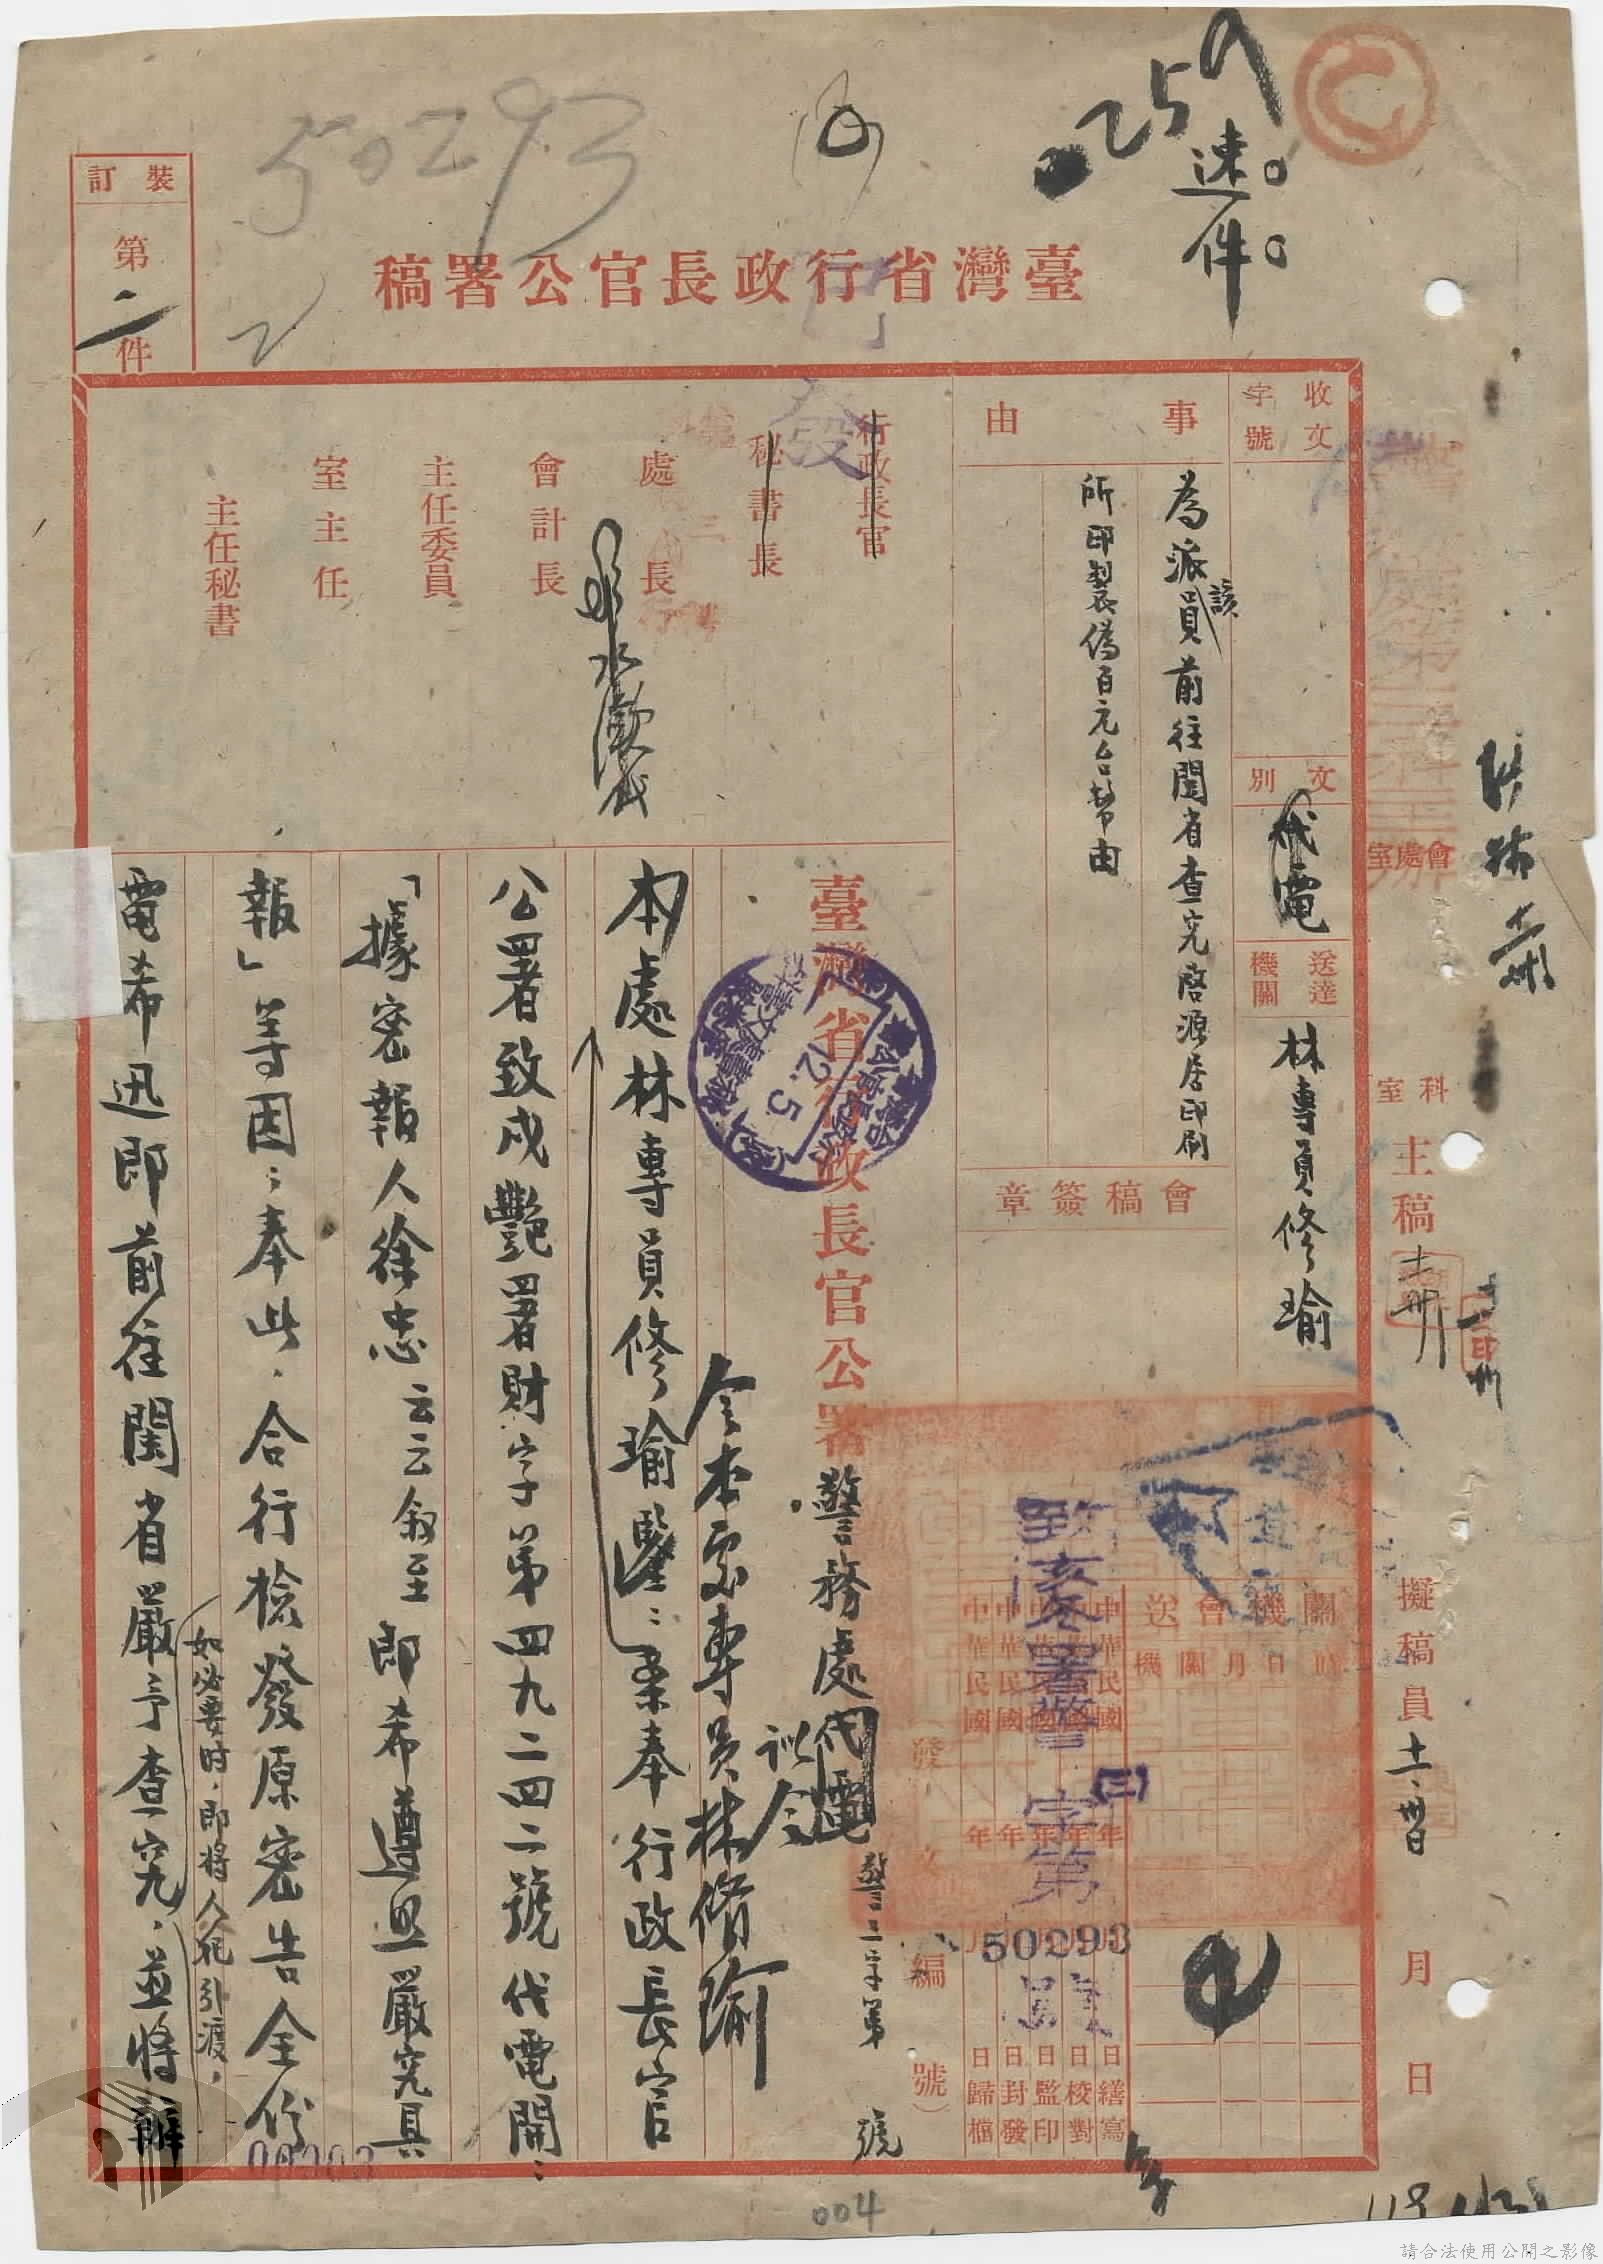 50293
259
速件
臺灣省行政長官公署稿
裝訂
第二件
收文
字號
文別
代電
送達
機關
林專員修瑜
事由
為派該員前往閩省查究啓源居印刷
所印製偽百元台幣由
會稿簽章
行政長官
秘書長
處長
會計長
主任委員
室主任
主任秘書
會處室
科室
主稿
擬稿員
十一、卅日
月
日
關機會送
時日月關機
中華民國 年 月 日繕寫
中華民國 年 月 日校對
中華民國 年 月 日監印
中華民國 年 月 日封發
中華民國 年 月 日歸檔
致亥冬署警(三)字第
50293
號
發文編號)
臺灣省行政長官公署警務處代電
警三字第 號
12.5
訓令
令本處專員林脩瑜
本處林專員修瑜鑒：案奉行政長官
公署致戌艷署財字第四九二四二號代電開：
「據密報人徐忠云云敘至即希遵照嚴究具
報」等因；奉此，合行檢發原密告全份
如必要時，即將人犯引渡，
電希迅即前往閩省嚴予查究，並將辦
004
請合法使用公開之影像